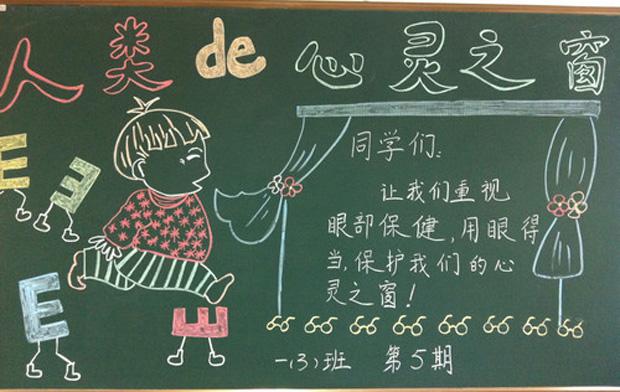 人类de心灵之窗
同学们:
让我们重视
眼部保健,用眼得
当,保护我们的心
灵之窗!
E
E
E
E
一(3)班 第5期